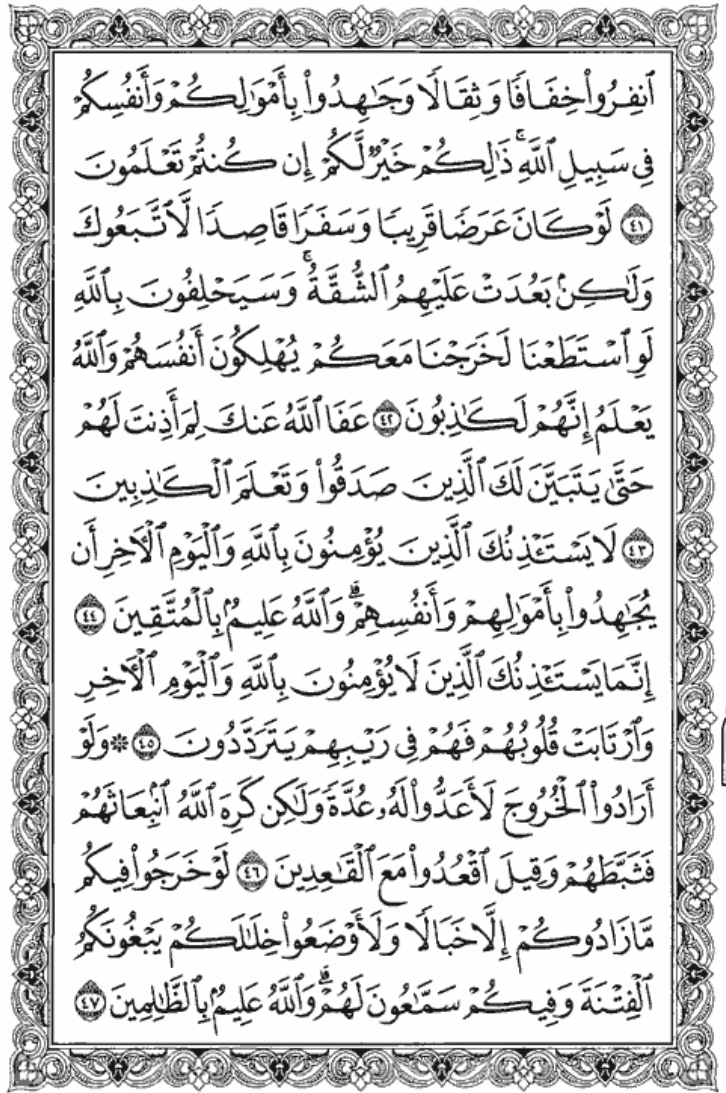 ٱنفِرُواْ خِفَافٗا وَثِقَالٗا وَجَٰهِدُواْ بِأَمۡوَٰلِكُمۡ وَأَنفُسِكُمۡ
فِي سَبِيلِ ٱللَّهِۚ ذَٰلِكُمۡ خَيۡرٞ لَّكُمۡ إِن كُنتُمۡ تَعۡلَمُونَ
٤١ لَوۡ كَانَ عَرَضٗا قَرِيبٗا وَسَفَرٗا قَاصِدٗا لَّٱتَّبَعُوكَ
وَلَٰكِنۢ بَعُدَتۡ عَلَيۡهِمُ ٱلشُّقَّةُۚ وَسَيَحۡلِفُونَ بِٱللَّهِ
لَوِ ٱسۡتَطَعۡنَا لَخَرَجۡنَا مَعَكُمۡ يُهۡلِكُونَ أَنفُسَهُمۡ وَٱللَّهُ
يَعۡلَمُ إِنَّهُمۡ لَكَٰذِبُونَ ٤٢ عَفَا ٱللَّهُ عَنكَ لِمَ أَذِنتَ لَهُمۡ
حَتَّىٰ يَتَبَيَّنَ لَكَ ٱلَّذِينَ صَدَقُواْ وَتَعۡلَمَ ٱلۡكَٰذِبِينَ
٤٣ لَا يَسۡتَـٔۡذِنُكَ ٱلَّذِينَ يُؤۡمِنُونَ بِٱللَّهِ وَٱلۡيَوۡمِ ٱلۡأٓخِرِ أَن
يُجَٰهِدُواْ بِأَمۡوَٰلِهِمۡ وَأَنفُسِهِمۡۗ وَٱللَّهُ عَلِيمُۢ بِٱلۡمُتَّقِينَ ٤٤
إِنَّمَا يَسۡتَـٔۡذِنُكَ ٱلَّذِينَ لَا يُؤۡمِنُونَ بِٱللَّهِ وَٱلۡيَوۡمِ ٱلۡأٓخِرِ
وَٱرۡتَابَتۡ قُلُوبُهُمۡ فَهُمۡ فِي رَيۡبِهِمۡ يَتَرَدَّدُونَ ٤٥ ۞ وَلَوۡ
أَرَادُواْ ٱلۡخُرُوجَ لَأَعَدُّواْ لَهُۥ عُدَّةٗ وَلَٰكِن كَرِهَ ٱللَّهُ ٱنۢبِعَاثَهُمۡ
فَثَبَّطَهُمۡ وَقِيلَ ٱقۡعُدُواْ مَعَ ٱلۡقَٰعِدِينَ ٤٦ لَوۡ خَرَجُواْ فِيكُم
مَّا زَادُوكُمۡ إِلَّا خَبَالٗا وَلَأَوۡضَعُواْ خِلَٰلَكُمۡ يَبۡغُونَكُمُ
ٱلۡفِتۡنَةَ وَفِيكُمۡ سَمَّٰعُونَ لَهُمۡۗ وَٱللَّهُ عَلِيمُۢ بِٱلظَّٰلِمِينَ ٤٧